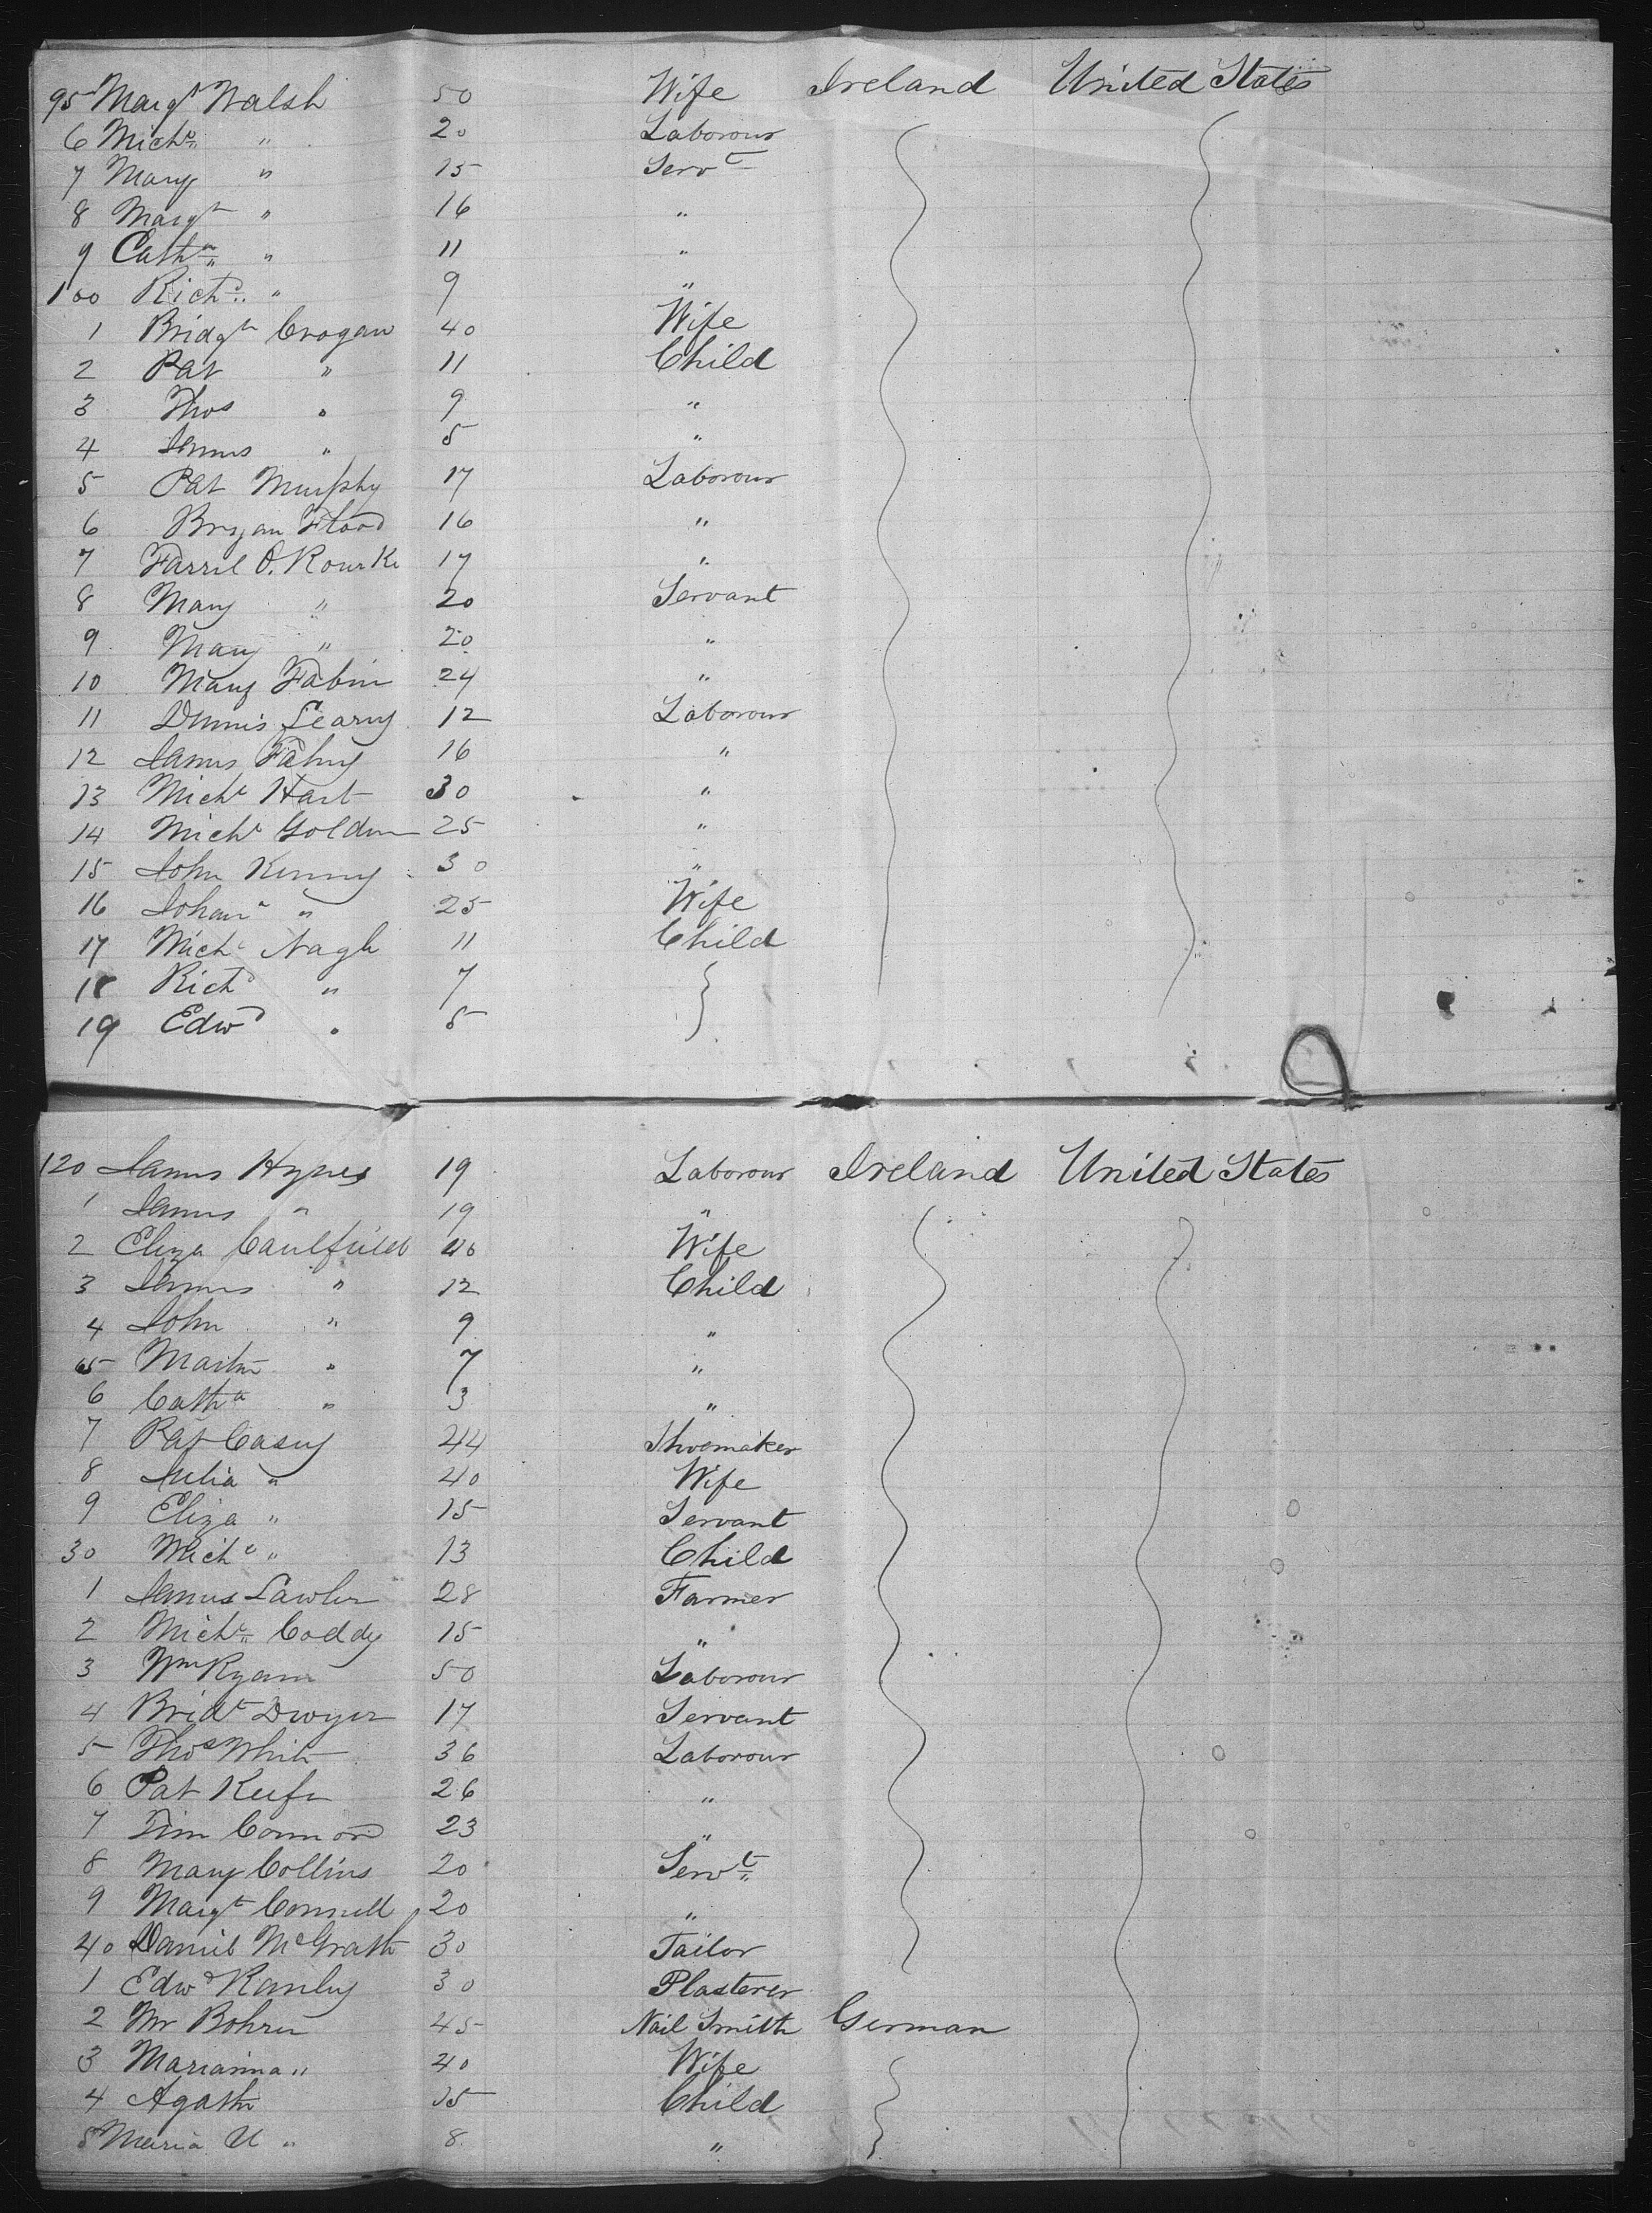 95 Margt Walsh 50 Wife Ireland United States
6 Michl " 20 Laborour
7 Mary " 15 Servt
8 Margt " 16 "
9 Catha " 11 "
100 Richd " 9 "
1 Bridgt Crogan 40 Wife
2 Pat " 11 Child
3 Thos " 9 "
4 James " 5 "
5 Pat Murphy 17 Laborour
6 Bryan Flood 16 "
7 Farril O. Rourke 17 "
8 Mary " 20 Servant
9 Mary " 20 "
10 Mary 24 "
11 Dennis Leary 12 Laborour
12 James Fahey 16 "
13 Michl Hart 30 "
14 Michl Golden 25 "
15 John Kenny 30 "
16 Johana " 25 Wife
17 Michl Nagle 11 Child
18 Richd " 7
19 Edwd " 5
120 James Hynes 19 Laborour Ireland United States
1 James " 19 "
2 Eliza Caulfield 40 Wife
3 James " 12 Child
4 John " 9 "
5 Martin " 7 "
6 Catha " 3 "
7 Pat Casey 44 Shoemaker
8 Julia " 40 Wife
9 Eliza " 15 Servant
30 Michl " 13 Child
1 James Lawler 28 Farmer
2 Michl Coddy 15 "
3 Wm Ryan 50 Laborour
4 Bridt Dwyer 17 Servant
5 Thos White 36 Laborour
6 Pat Keefe 26 "
7 Tim Connord 23 "
8 Mary Collins 20 Servt
9 Margt Connell 20 "
40 Daniel McGrath 30 Tailor
1 Edwd 30 Plasterer
2 Mr Bohren 45 Nail Smith German
3 Marianna " 40 Wife
4 Agathe 15 Child
5 Maria U " 8 "